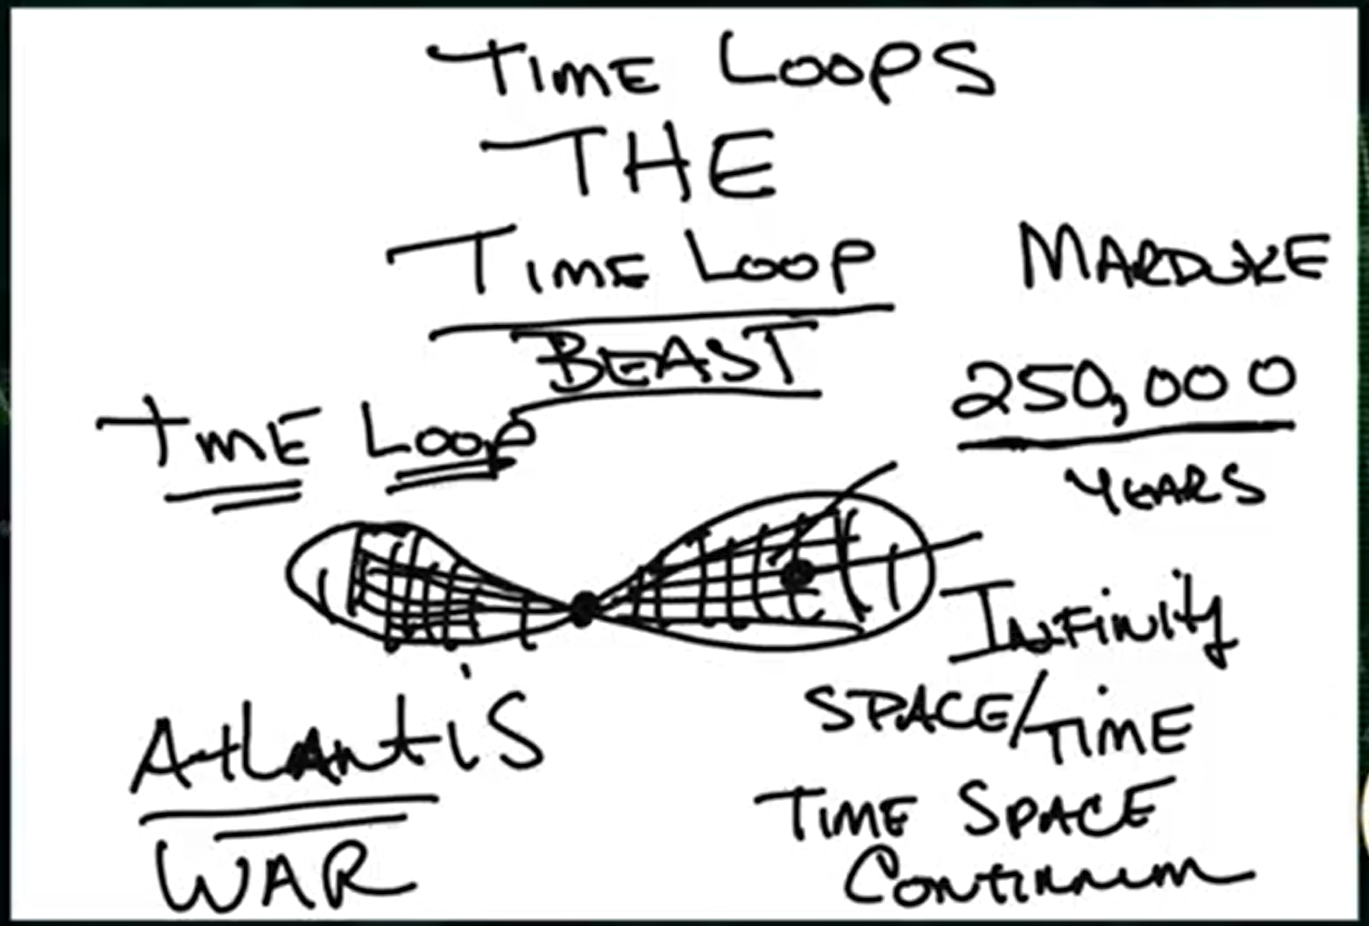 TIME LOOPS
THE
TIME LOOP
BEAST
MARDUKE
250,000
YEARS
TIME LOOP
INFINITY
SPACE/TIME
TIME SPACE
CONTINUUM
AtLANtiS
WAR